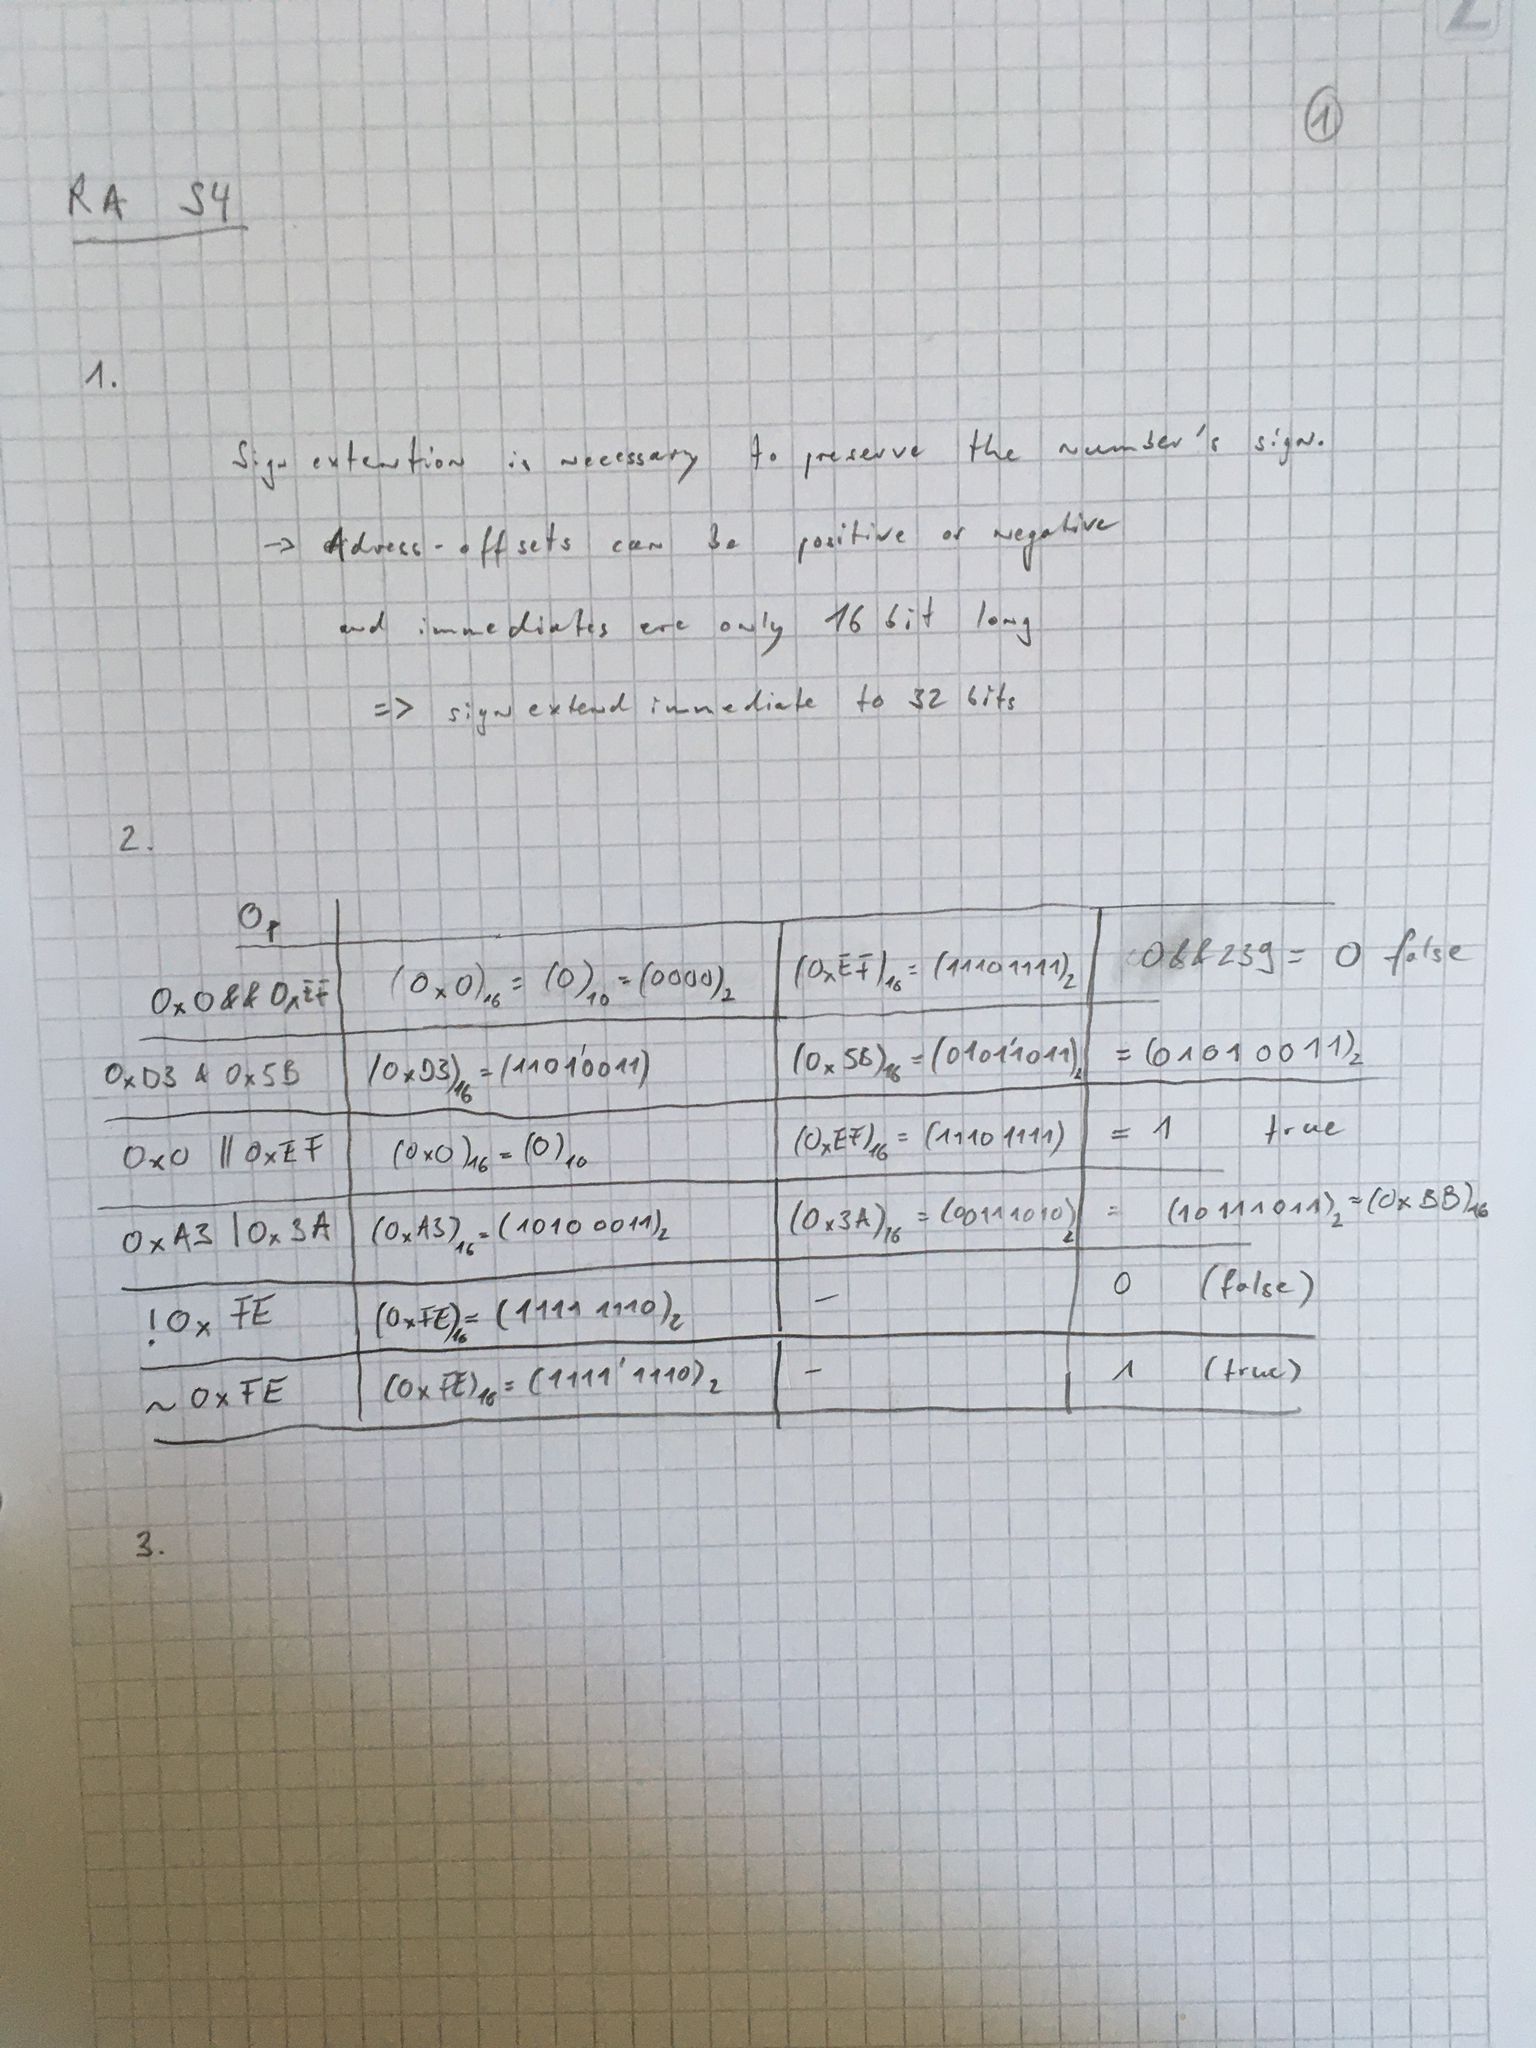 Z
1
RA S4
1.
Sign extention is necessary to preserve the number's sign.
-> Adress-offsets can be positive or negative
and immediates are only 16 bit long
=> sign extend immediate to 32 bits
2.
Op
0x0 && 0xEF (0x0)₁₆ = (0)₁₀ = (0000)₂ (0xEF)₁₆ = (11101111)₂ 0&&239 = 0 false
0xD3 & 0x5B (0xD3)₁₆ = (1101'0011) (0x5B)₁₆ = (0101'1011)₂ = (01010011)₂
0x0 || 0xEF (0x0)₁₆ = (0)₁₀ (0xEF)₁₆ = (11101111) = 1 true
0xA3 | 0x3A (0xA3)₁₆ = (10100011)₂ (0x3A)₁₆ = (00111010)₂ = (10111011)₂ = (0xBB)₁₆
!0xFE (0xFE)₁₆ = (1111 1110)₂ - 0 (false)
~0xFE (0xFE)₁₆ = (1111'1110)₂ - 1 (true)
3.